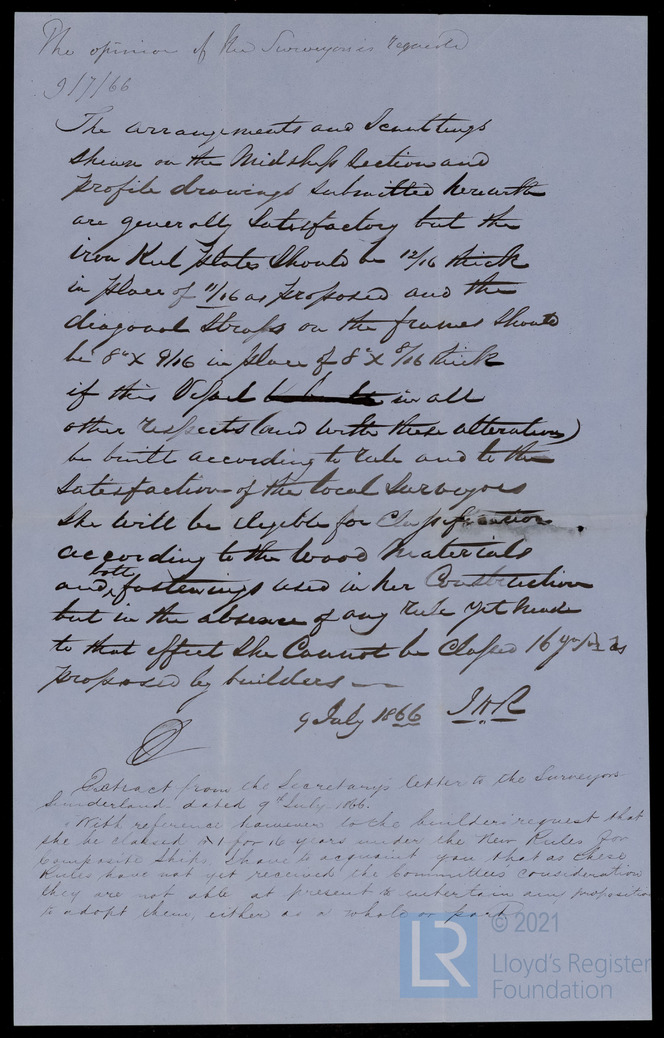 The opinion of the Surveyors is requested
9/7/66
The arrangements and Scantlings
shewn on the Midship Section and
profile drawings submitted herewith
are generally satisfactory but the
iron Keel plates should be 12/16 thick
in place of 11/16 as proposed and the
diagonal straps on the frames should
be 8" x 9/16 in place of 8" x 8/16 thick
if this Vessel in all
other respects (and with these alterations)
be built according to rule and to the
satisfaction of the local Surveyors
she will be eligible for Classification
according to the wood Materials
and both fastenings used in her Construction
but in the absence of any rule yet made
to that effect she Cannot be Classed 16 yrs as
proposed by builders
9 July 1866
Extract from the Secretary's letter to the Surveyors
Sunderland dated 9th July 1866.
With reference however to the builders request that
she be classed A1 for 16 years under the New Rules for
Composite Ships, I have to acquaint you that as these
Rules have not yet received the Committee's consideration
they are not able at present to entertain any proposition
to adopt them, either as a whole or part
LR
© 2021
Lloyd's Register
Foundation